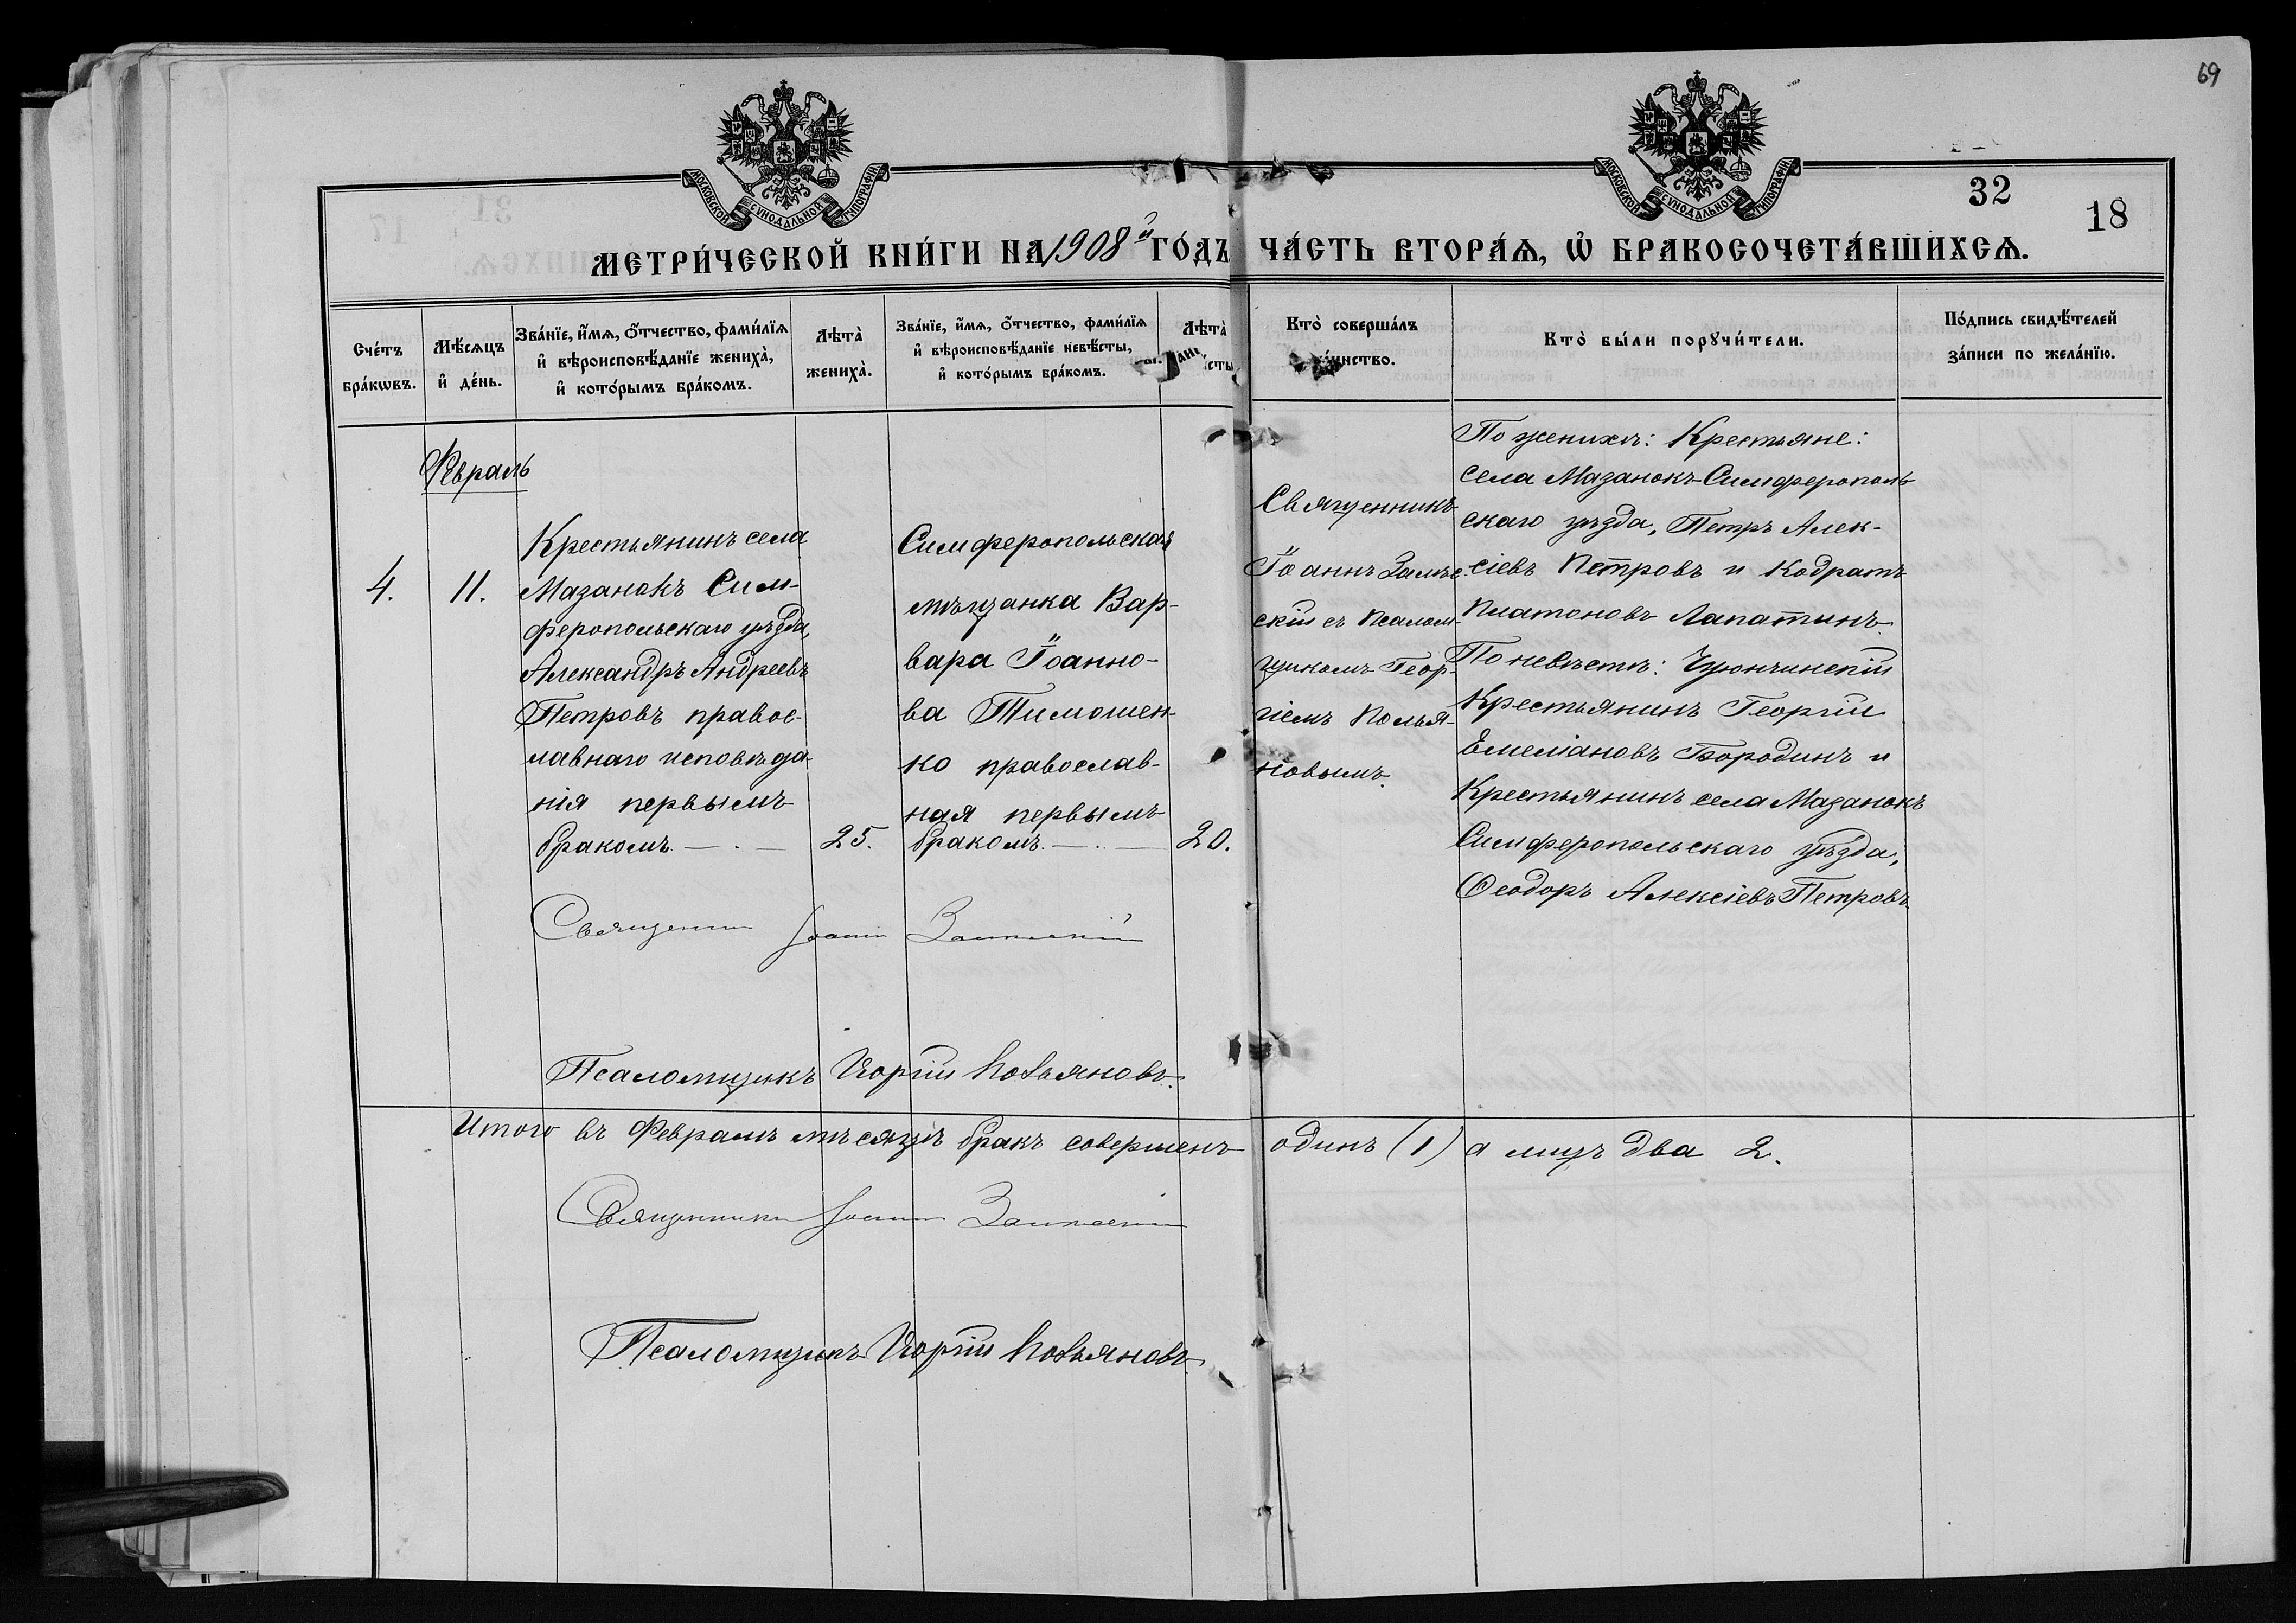 69
МОСКОВСКОЙ СѴНОДАЛЬНОЙ ТИПОГРАФІИ
МОСКОВСКОЙ СѴНОДАЛЬНОЙ ТИПОГРАФІИ
32
18
МЕТРИ́ЧЕСКОЙ КНИ́ГИ НА 1908й ГО́ДЪ ЧА́СТЬ ВТОРА́Ѧ, Ѡ҆ БРАКОСОЧЕТА́ВШИХСѦ.
Сче́тъ бра́кѡвъ.
Мѣ́сѧцъ и҆ де́нь.
Зва́нїе, и҆́мѧ, ѻ҆́тчество, фами́лїѧ
и҆ вѣроисповѣ́данїе жениха̀,
и҆ кото́рымъ бра́комъ.
Лѣта̀ жениха̀.
Зва́нїе, и҆́мѧ, ѻ҆́тчество, фами́лїѧ
и҆ вѣроисповѣ́данїе невѣ́сты,
и҆ кото́рымъ бра́комъ.
Лѣта̀
Кто̀ соверша́лъ
Кто̀ бы́ли порꙋчи́тели.
По́дпись свидѣ́телей
за́писи по жела́нїю.
Февраль
4.
11.
Крестьянинъ села
Мазанокъ Сим-
феропольскаго уѣзда,
Александръ Андреевъ
Петровъ правос-
лавнаго исповѣда-
нія первымъ
бракомъ.
25.
Симферопольская
мѣщанка Вар-
вара Іоанно-
ва Тимошен-
ко православ-
ная первымъ
бракомъ.
20.
Священникъ
Іоаннъ
скій съ Псалом-
щикомъ Геор-
гіемъ
новымъ.
По женихѣ: Крестьяне:
села Мазанокъ Симферополь-
скаго уѣзда, Петръ Алек-
сіевъ Петровъ и Кодратъ
Платоновъ Лапатинъ.
По невѣстѣ:
Крестьянинъ Георгій
Емеліановъ Бородинъ и
Крестьянинъ села Мазанокъ
Симферопольскаго уѣзда,
Ѳеодоръ Алексіевъ Петровъ.
Священникъ Іоаннъ
Псаломщикъ Георгій
Итого въ Февралѣ мѣсяцѣ бракъ совершенъ одинъ (1) а лицъ два 2.
Священникъ Іоаннъ
Псаломщикъ Георгій